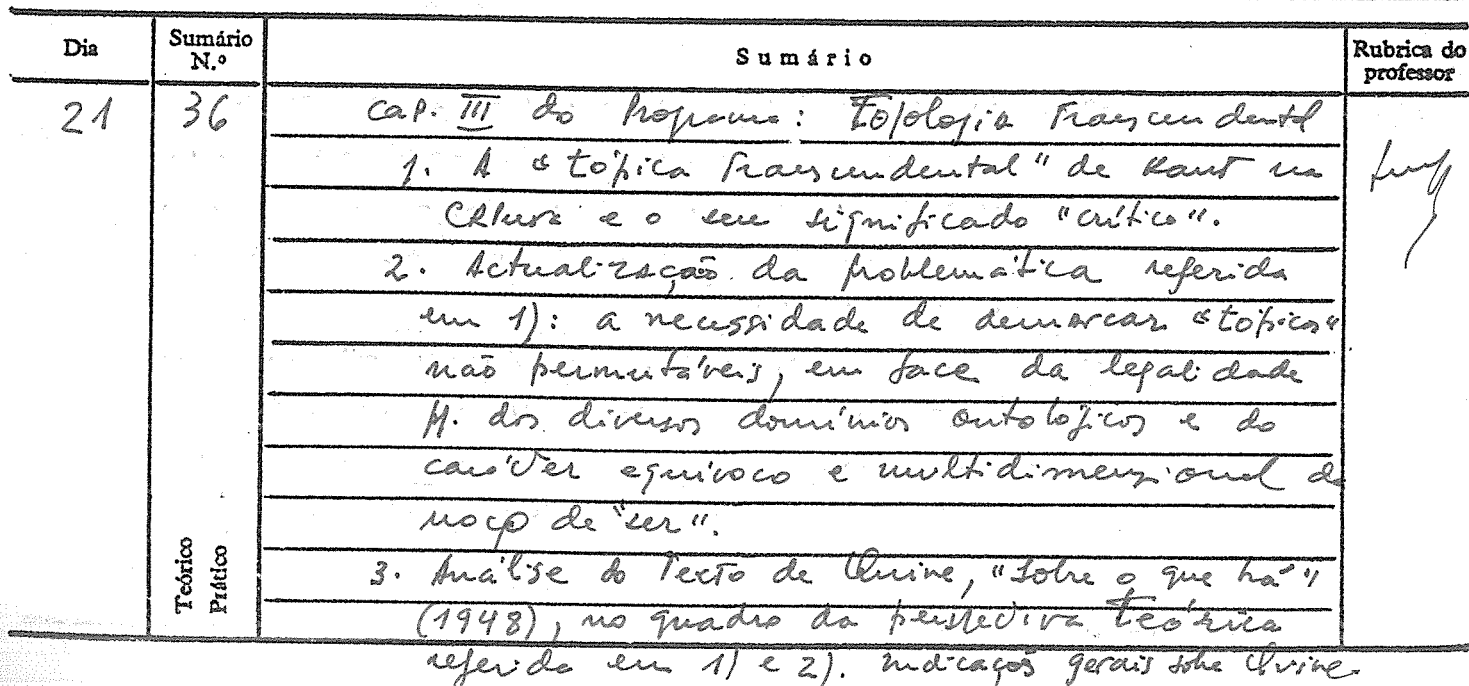 Dia
Sumário N.º
Sumário
Rubrica do professor
21
36
Cap. III do Programa: Topologia Transcendental
1. A "tópica Transcendental" de Kant na
CRPura e o seu significado "crítico".
2. Actualização da problemática referida
em 1): a necessidade de demarcar "tópicos"
não permutáveis, em face da legalidade
dos diversos domínios ontológicos e do
carácter equívoco e multidimensional da
noção de "ser".
3. Análise do Texto de Quine, "Sobre o que há"
(1948), no quadro da perspectiva Teórica
referida em 1) e 2). Indicações gerais sobre Quine.
Teórico
Prático